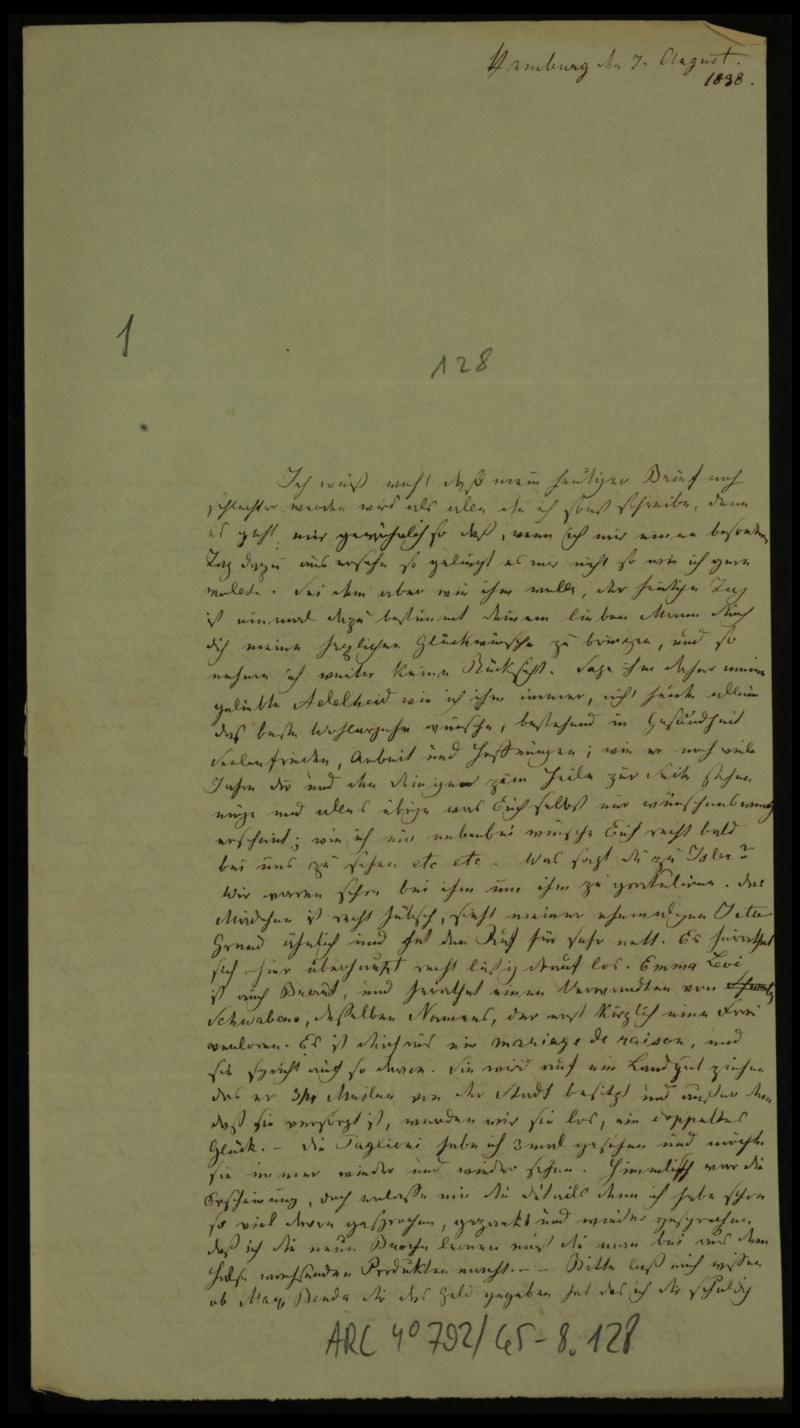 Hamburg den 7. August.
1838.
1
128
Ich weiß wohl daß mein heutiger Brief noch
schlechter werden wird als alle die ich sonst schreibe, denn
es geht mir gewöhnlich so daß, wenn ich mir einen besondern
Tag dazu ausersehe so gelingt es mir nicht so wie ich gern
wollte. Sei dem aber wie ihm wolle, der heutige Tag
ist einmal dazu bestimmt deinem lieben Mann durch
dich meine herzlichen Glückwünsche zu bringen, und so
nehme ich weiter keine Rücksicht. Sage ihm daher meine
geliebte Adelheid wie ich ihm immer, nicht heute allein
das beste Wohlergehn wünsche, bestehend in Gesundheit
Seelenfrieden, Arbeit und Hoffnungen; wie er noch viele
Jahre dir und den deinigen zum Heile zur Seite stehen
möge und alles übrige was Euch selbst nur wünschenswerth
erscheint; wie ich nur nebenbei wünsche Euch recht bald
bei uns zu sehen etc etc. Was sagst du zu Isler?
Wir waren schon bei ihm um ihm zu gratuliren. Das
Mädchen ist recht hübsch, sieht meiner ehemaligen Jette
ähnlich und hat den Ruf für sehr nett. Es heirathet
sich hier überhaupt recht lustig drauf los. Emma Levi
ist auch Braut, und heirathet einen Verwandten von
Schwabens, desselben Namens, der erst kürzlich eine Frau
verloren. Es ist durchaus ein mariage de raison, und
sie spricht auch so davon. Sie wird auf ein Landgut ziehen
das er 3/4 Meilen von der Stadt besitzt und außer dem
daß sie versorgt ist, werden wir sie los, ein doppeltes
Glück. – Die Taglioni habe ich 3 mal gesehen und möchte
sie immer wieder und wieder sehen. Himmlisch war die
Erscheinung, doch erlasse mir die Details denn ich habe schon
so viel davon gesprochen, gezankt und wieder gesprochen
daß ich die neue lernen muß die man bei aus dem
Halse wachsenden Produkten macht. – – Bitte laß mich wissen
ob Benda dir das Geld gegeben hat das ich dir schuldig
ARC 4° 792/G5-8. 128